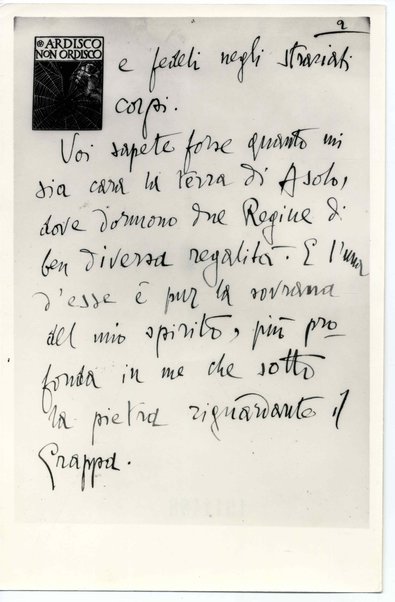 2
ARDISCO
NON ORDISCO
e fedeli negli straziati
corpi.
Voi sapete forse quanto mi
sia cara la terra di Asolo,
dove dormono due Regine di
ben diversa regalità. E l'una
d'esse è pur la sovrana
del mio spirito, più pro-
fonda in me che sotto
la pietra riguardante il
Grappa.